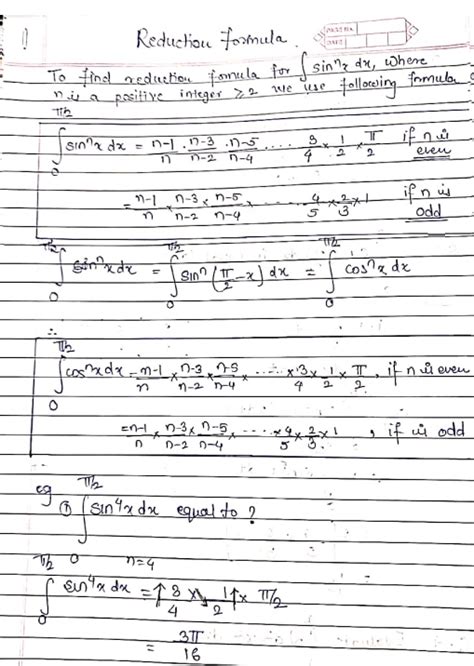 Reduction formula.
To find reduction formula for ∫ sin^n x dx, where
n is a positive integer ≥ 2 we use following formula
∫_0^{π/2} sin^n x dx = n-1/n · n-3/n-2 · n-5/n-4 ..... 3/4 × 1/2 × π/2 if n is even
= n-1/n × n-3/n-2 × n-5/n-4 ...... 4/5 × 2/3 × 1 if n is odd
∫_0^{π/2} sin^n x dx = ∫_0^{π/2} sin^n (π/2 - x) dx = ∫_0^{π/2} cos^n x dx
∴
∫_0^{π/2} cos^n x dx = n-1/n × n-3/n-2 × n-5/n-4 × ..... × 3/4 × 1/2 × π/2, if n is even
= n-1/n × n-3/n-2 × n-5/n-4 × ..... × 4/5 × 2/3 × 1 , if is odd
eg ① ∫_0^{π/2} sin^4 x dx equal to ?
n=4
∫_0^{π/2} sin^4 x dx = 3/4 × 1/2 × π/2
= 3π/16